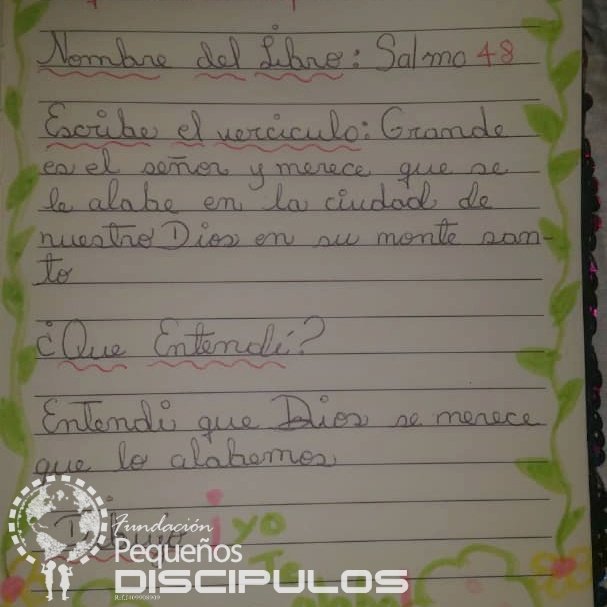 Nombre del Libro: Salmo 48
Escribe el verciculo: Grande
es el señor y merece que se
le alabe en la ciudad de
nuestro Dios en su monte san-
to
¿Que Entendi?
Entendi que Dios se merece
que lo alabemos
Dibujo ¡yo
Te
Fundación
Pequeños
DISCIPULOS